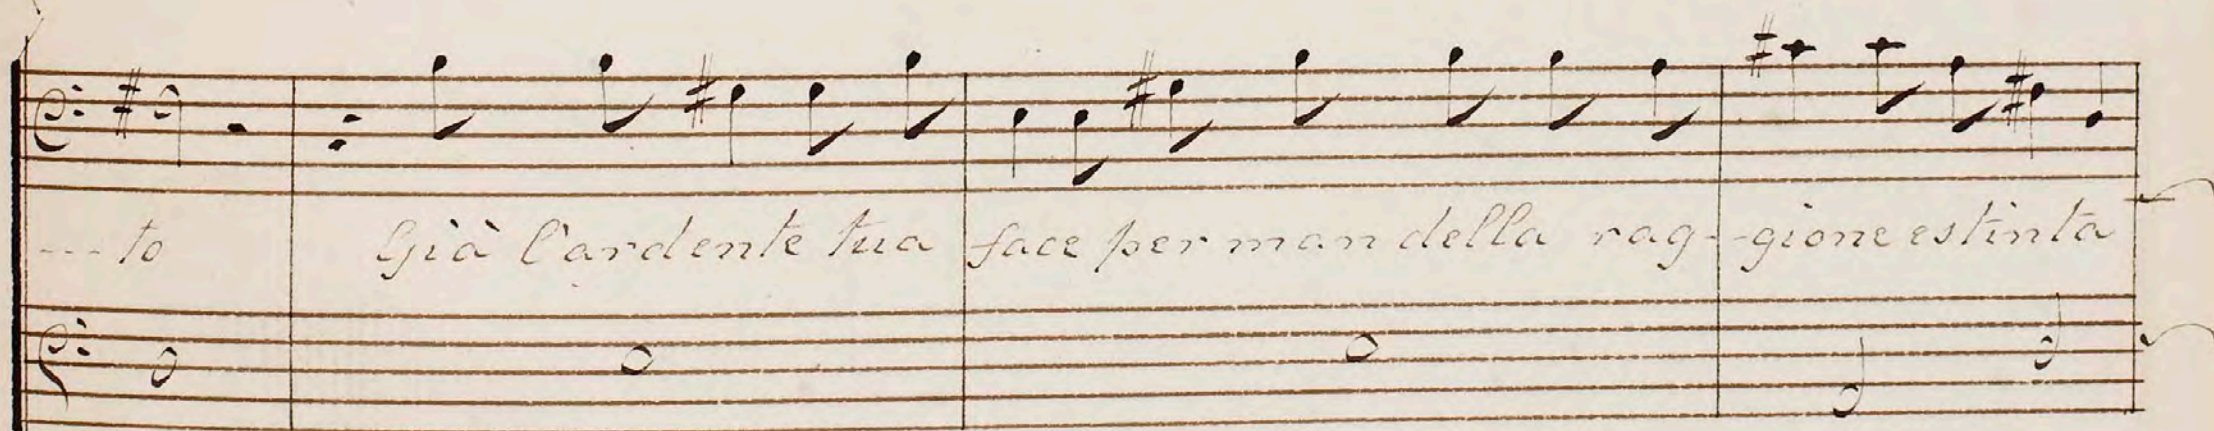 ---to Già l'ardente tua face per man della rag--gione estinta